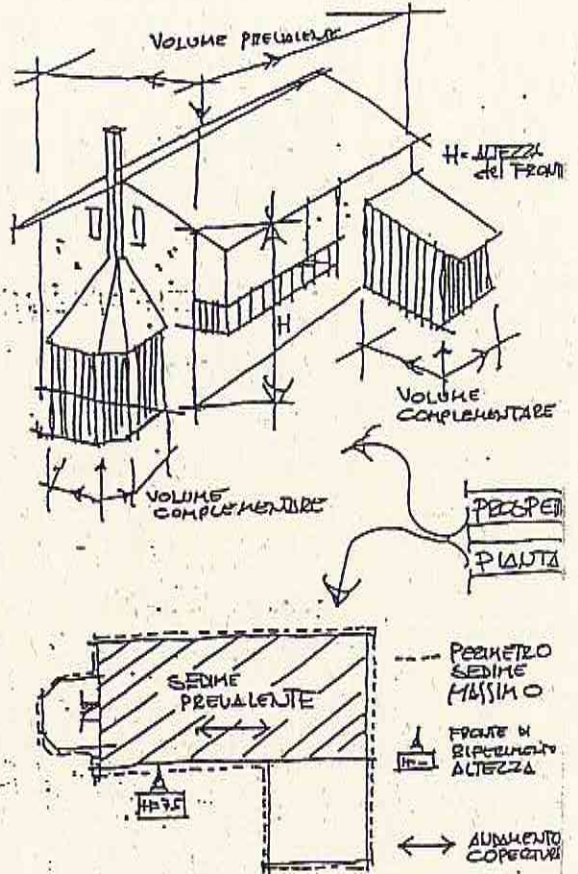 VOLUME PREVALENTE
H= ALTEZZA
del FRONTI
H
VOLUME
COMPLEMENTARE
VOLUME
COMPLEMENTARE
PROSPETTI
PIANTA
SEDIME
PREVALENTE
H=7.5
PERIMETRO
SEDIME
MASSIMO
FRONTE DI
RIFERIMENTO
ALTEZZA
H=
ANDAMENTO
COPERTURA